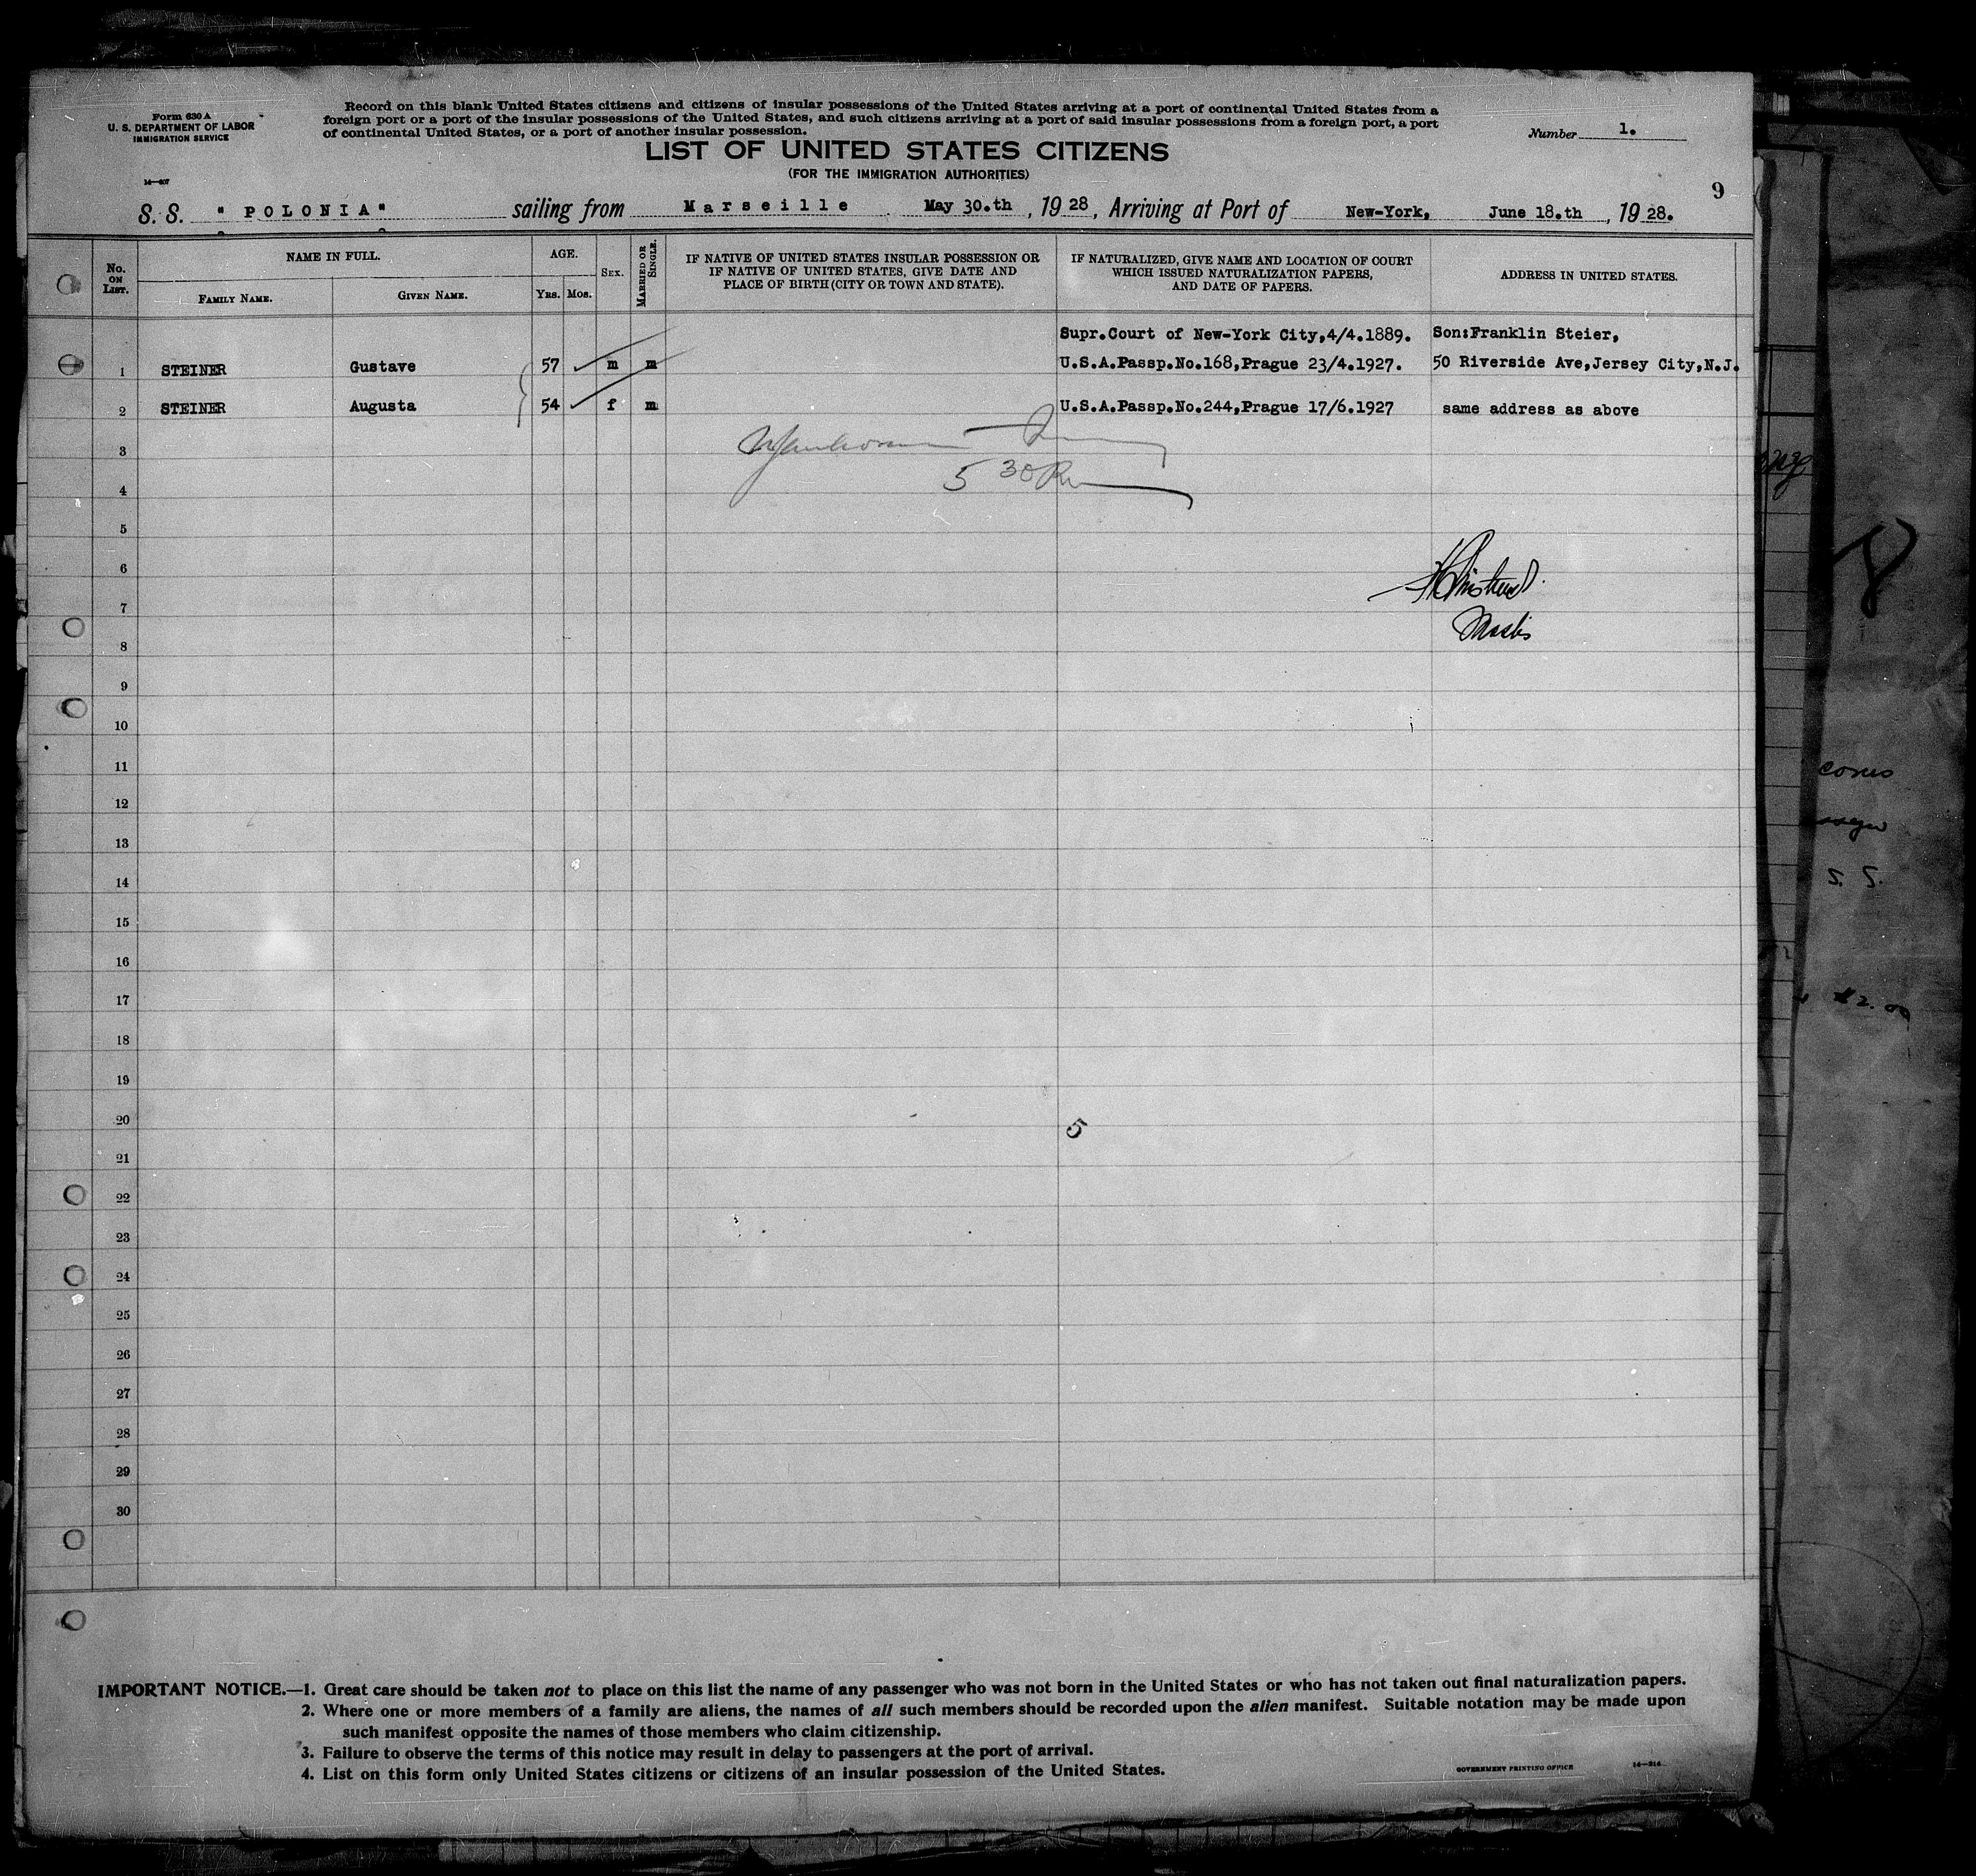 Form 630 A
U. S. DEPARTMENT OF LABOR
IMMIGRATION SERVICE
Record on this blank United States citizens and citizens of insular possessions of the United States arriving at a port of continental United States from a
foreign port or a port of the insular possessions of the United States, and such citizens arriving at a port of said insular possessions from a foreign port, a port
of continental United States, or a port of another insular possession.
Number 1.
LIST OF UNITED STATES CITIZENS
(FOR THE IMMIGRATION AUTHORITIES)
9
S. S. "POLONIA" sailing from Marseille May 30.th, 1928, Arriving at Port of New-York, June 18.th, 1928.
No. ON LIST.
NAME IN FULL.
FAMILY NAME.
GIVEN NAME.
AGE.
YRS. MOS.
SEX.
MARRIED OR SINGLE.
IF NATIVE OF UNITED STATES INSULAR POSSESSION OR
IF NATIVE OF UNITED STATES, GIVE DATE AND
PLACE OF BIRTH (CITY OR TOWN AND STATE).
IF NATURALIZED, GIVE NAME AND LOCATION OF COURT
WHICH ISSUED NATURALIZATION PAPERS,
AND DATE OF PAPERS.
ADDRESS IN UNITED STATES.
Supr.Court of New-York City,4/4.1889. Son:Franklin Steier,
1 STEINER Gustave 57 m m U.S.A.Passp.No.168,Prague 23/4.1927. 50 Riverside Ave,Jersey City,N.J.
2 STEINER Augusta 54 f m U.S.A.Passp.No.244,Prague 17/6.1927 same address as above
3
4
5 30
5
6
7
8
9
10
11
12
13
14
15
16
17
18
19
20
5
21
22
23
24
25
26
27
28
29
30
S. S.
$2.00
IMPORTANT NOTICE.—1. Great care should be taken not to place on this list the name of any passenger who was not born in the United States or who has not taken out final naturalization papers.
2. Where one or more members of a family are aliens, the names of all such members should be recorded upon the alien manifest. Suitable notation may be made upon
such manifest opposite the names of those members who claim citizenship.
3. Failure to observe the terms of this notice may result in delay to passengers at the port of arrival.
4. List on this form only United States citizens or citizens of an insular possession of the United States.
GOVERNMENT PRINTING OFFICE